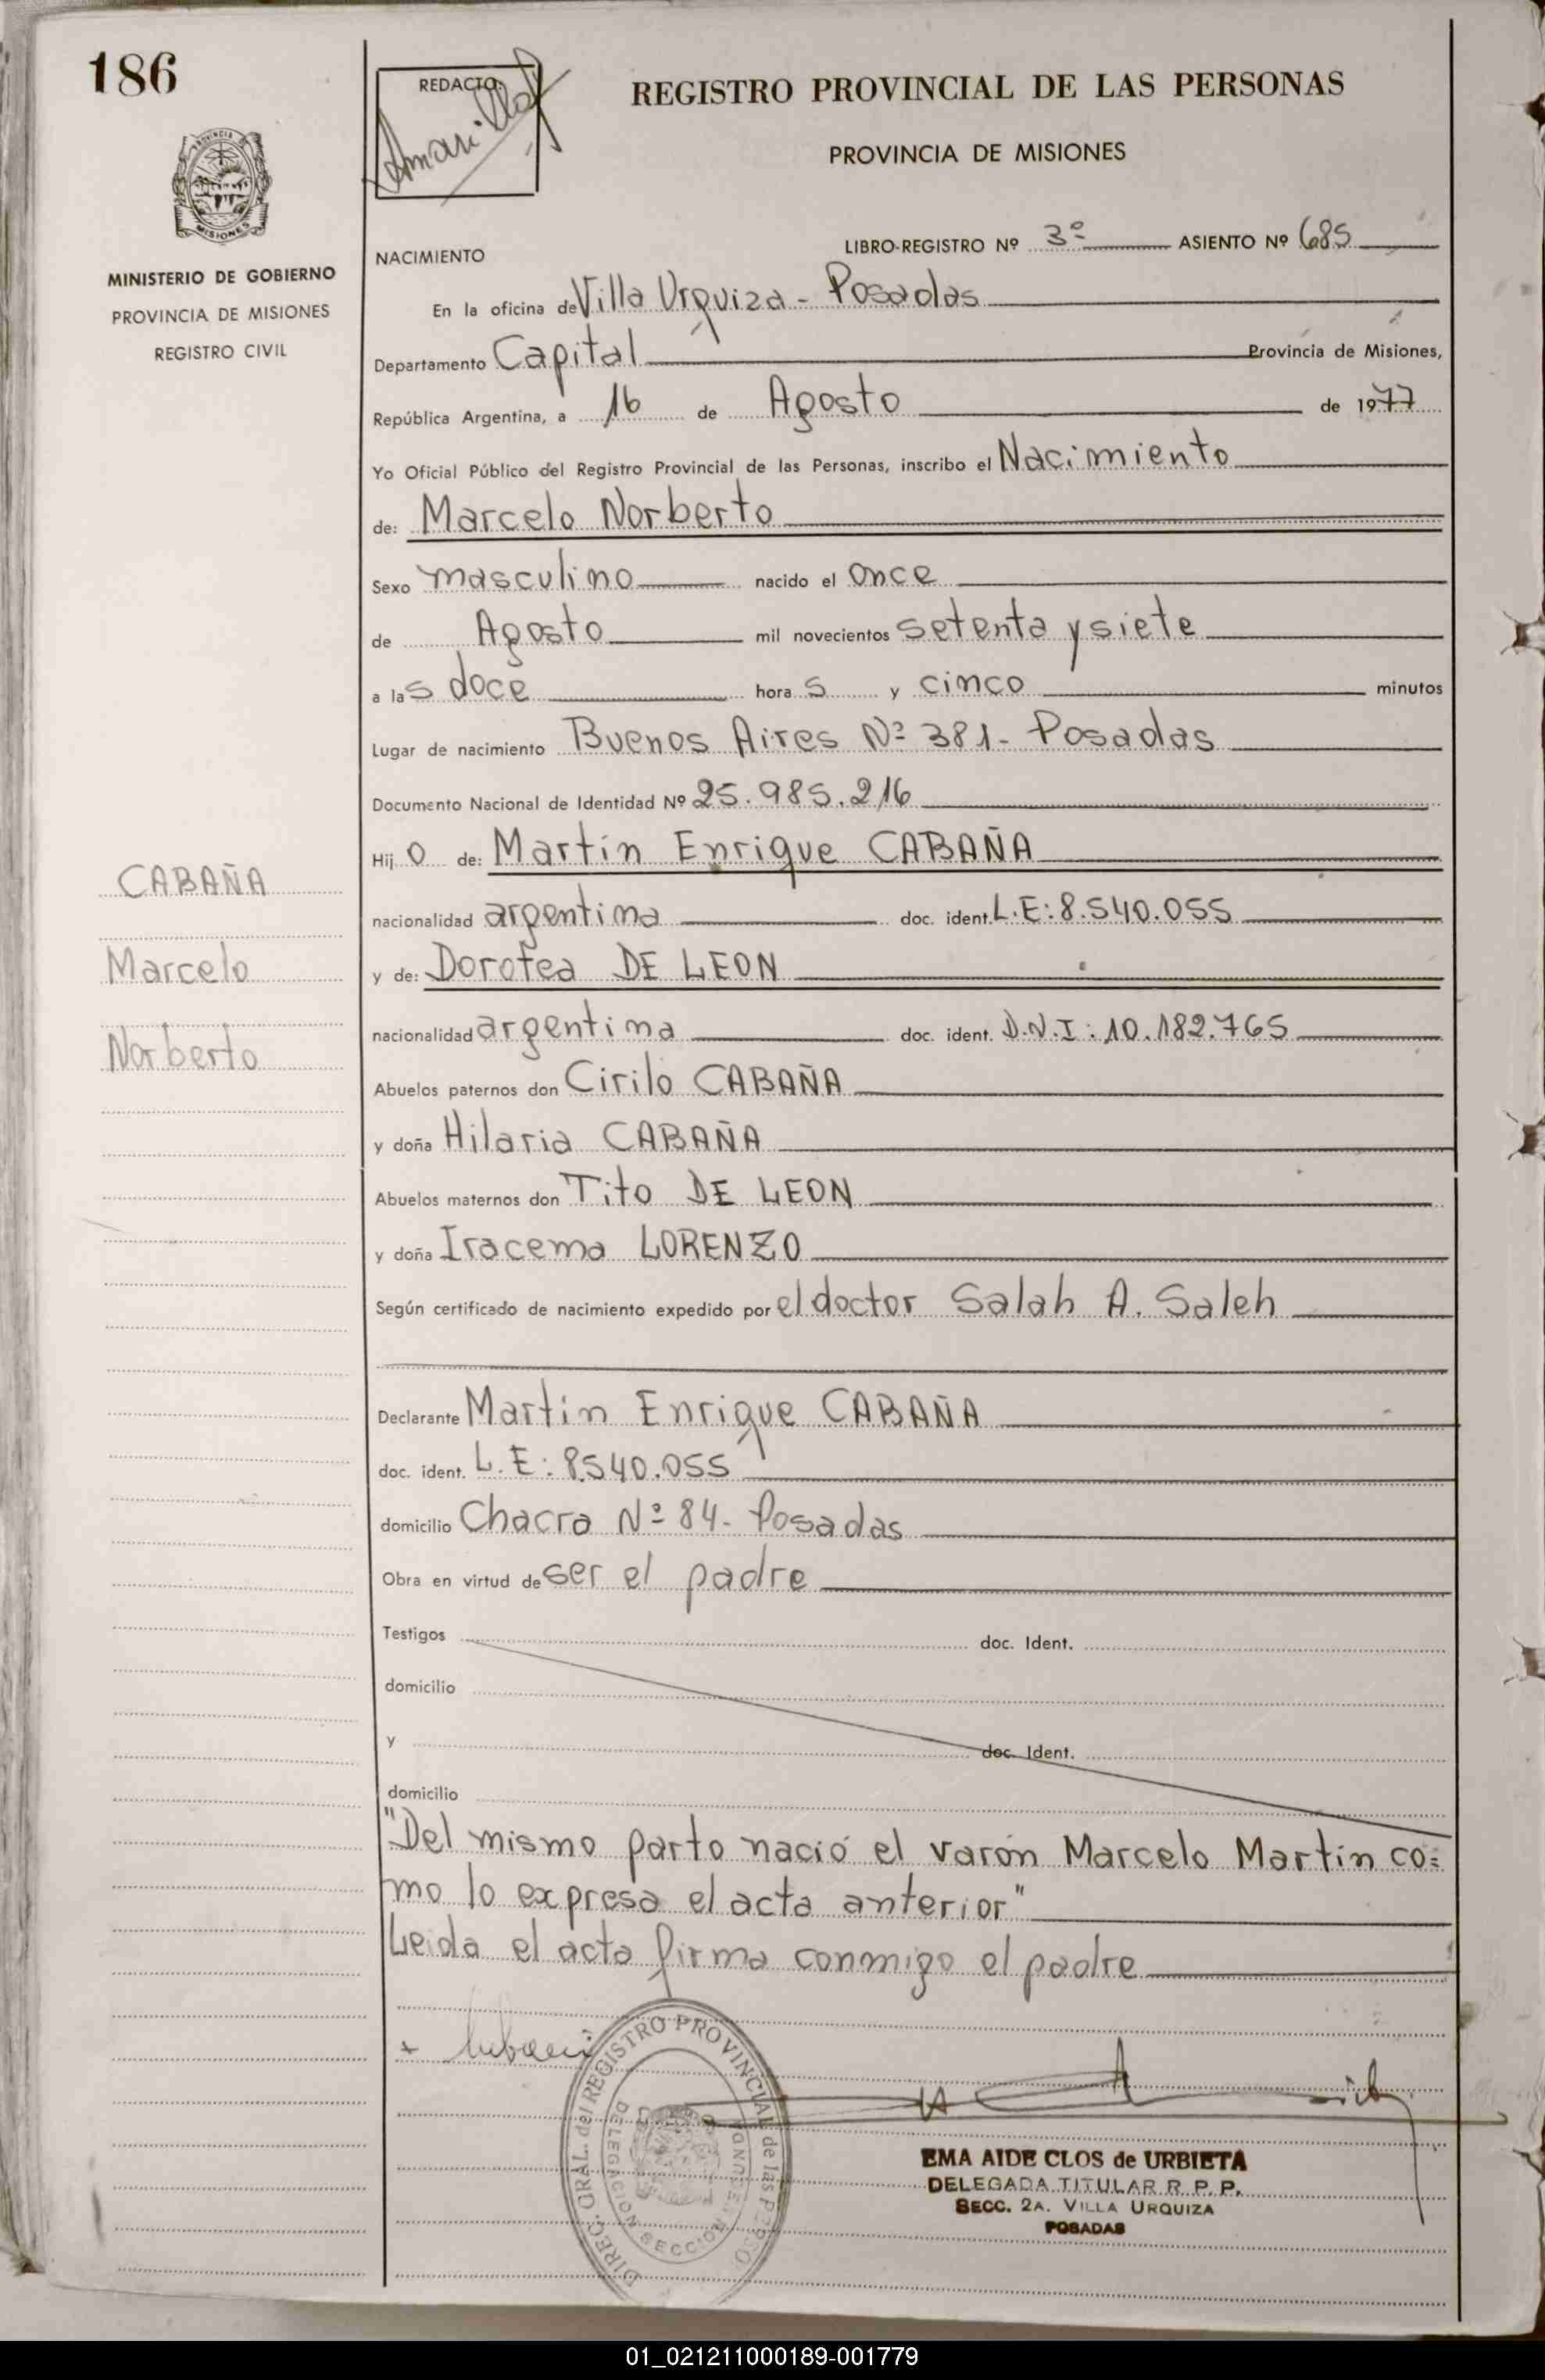 186
REDACTO:
Amarilla
REGISTRO PROVINCIAL DE LAS PERSONAS
PROVINCIA DE MISIONES
PROVINCIA
MISIONES
MINISTERIO DE GOBIERNO
PROVINCIA DE MISIONES
REGISTRO CIVIL
NACIMIENTO
LIBRO-REGISTRO Nº 3º ASIENTO Nº 685
En la oficina de Villa Urquiza - Posadas
Departamento Capital Provincia de Misiones,
República Argentina, a 16 de Agosto de 1977
Yo Oficial Público del Registro Provincial de las Personas, inscribo el Nacimiento
de: Marcelo Norberto
Sexo masculino nacido el once
de Agosto mil novecientos setenta y siete
a las doce horas y cinco minutos
Lugar de nacimiento Buenos Aires Nº 381- Posadas
Documento Nacional de Identidad Nº 25.985.216
Hijo de: Martin Enrique CABAÑA
nacionalidad argentina doc. ident. L.E:8.540.055
y de: Dorotea DE LEON
nacionalidad argentina doc. ident. D.N.I: 10.182.765
Abuelos paternos don Cirilo CABAÑA
y doña Hilaria CABAÑA
Abuelos maternos don Tito DE LEON
y doña Iracema LORENZO
Según certificado de nacimiento expedido por el doctor Salah A. Saleh
Declarante Martin Enrique CABAÑA
doc. ident. L.E: 8.540.055
domicilio Chacra Nº 84- Posadas
Obra en virtud de ser el padre
Testigos doc. Ident.
domicilio
y doc. Ident.
domicilio
"Del mismo parto nació el varón Marcelo Martin co=
mo lo expresa el acta anterior"
Leida el acta firma conmigo el padre
CABAÑA
Marcelo
Norberto
DIREC. GRAL. del REGISTRO PROVINCIAL de las PERSO
DELEGACION SECCION SEGUNDA
EMA AIDE CLOS de URBIETA
DELEGADA TITULAR R. P. P.
SECC. 2A. VILLA URQUIZA
POSADAS
01_021211000189-001779